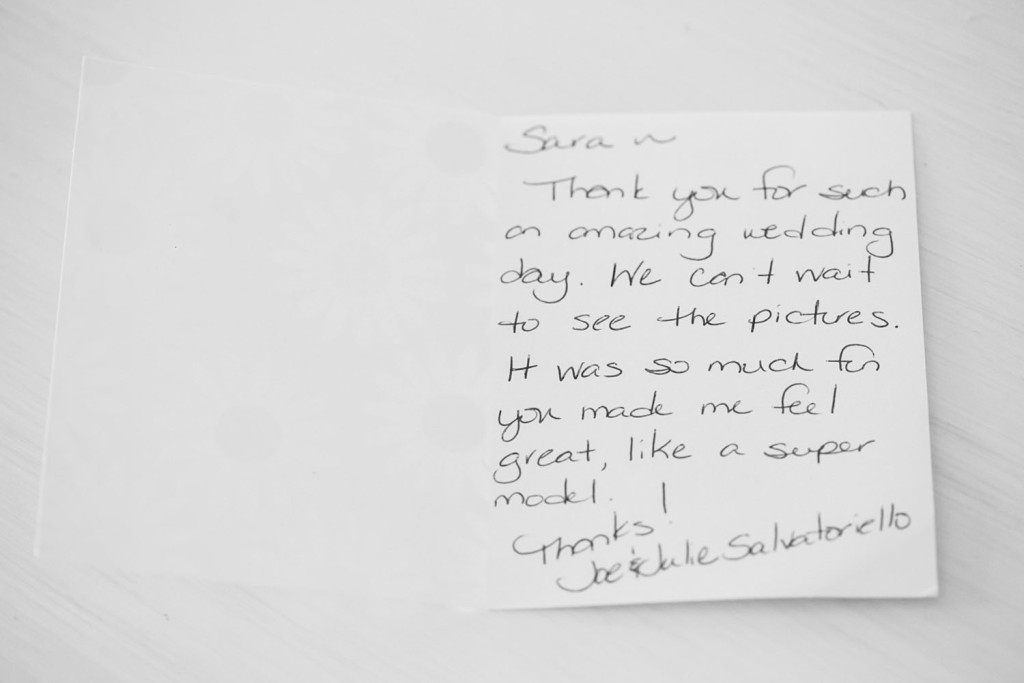 Sara ~
Thank you for such
an amazing wedding
day. We can't wait
to see the pictures.
It was so much fun
you made me feel
great, like a super
model.
Thanks!
Joe & Julie Salvatoriello